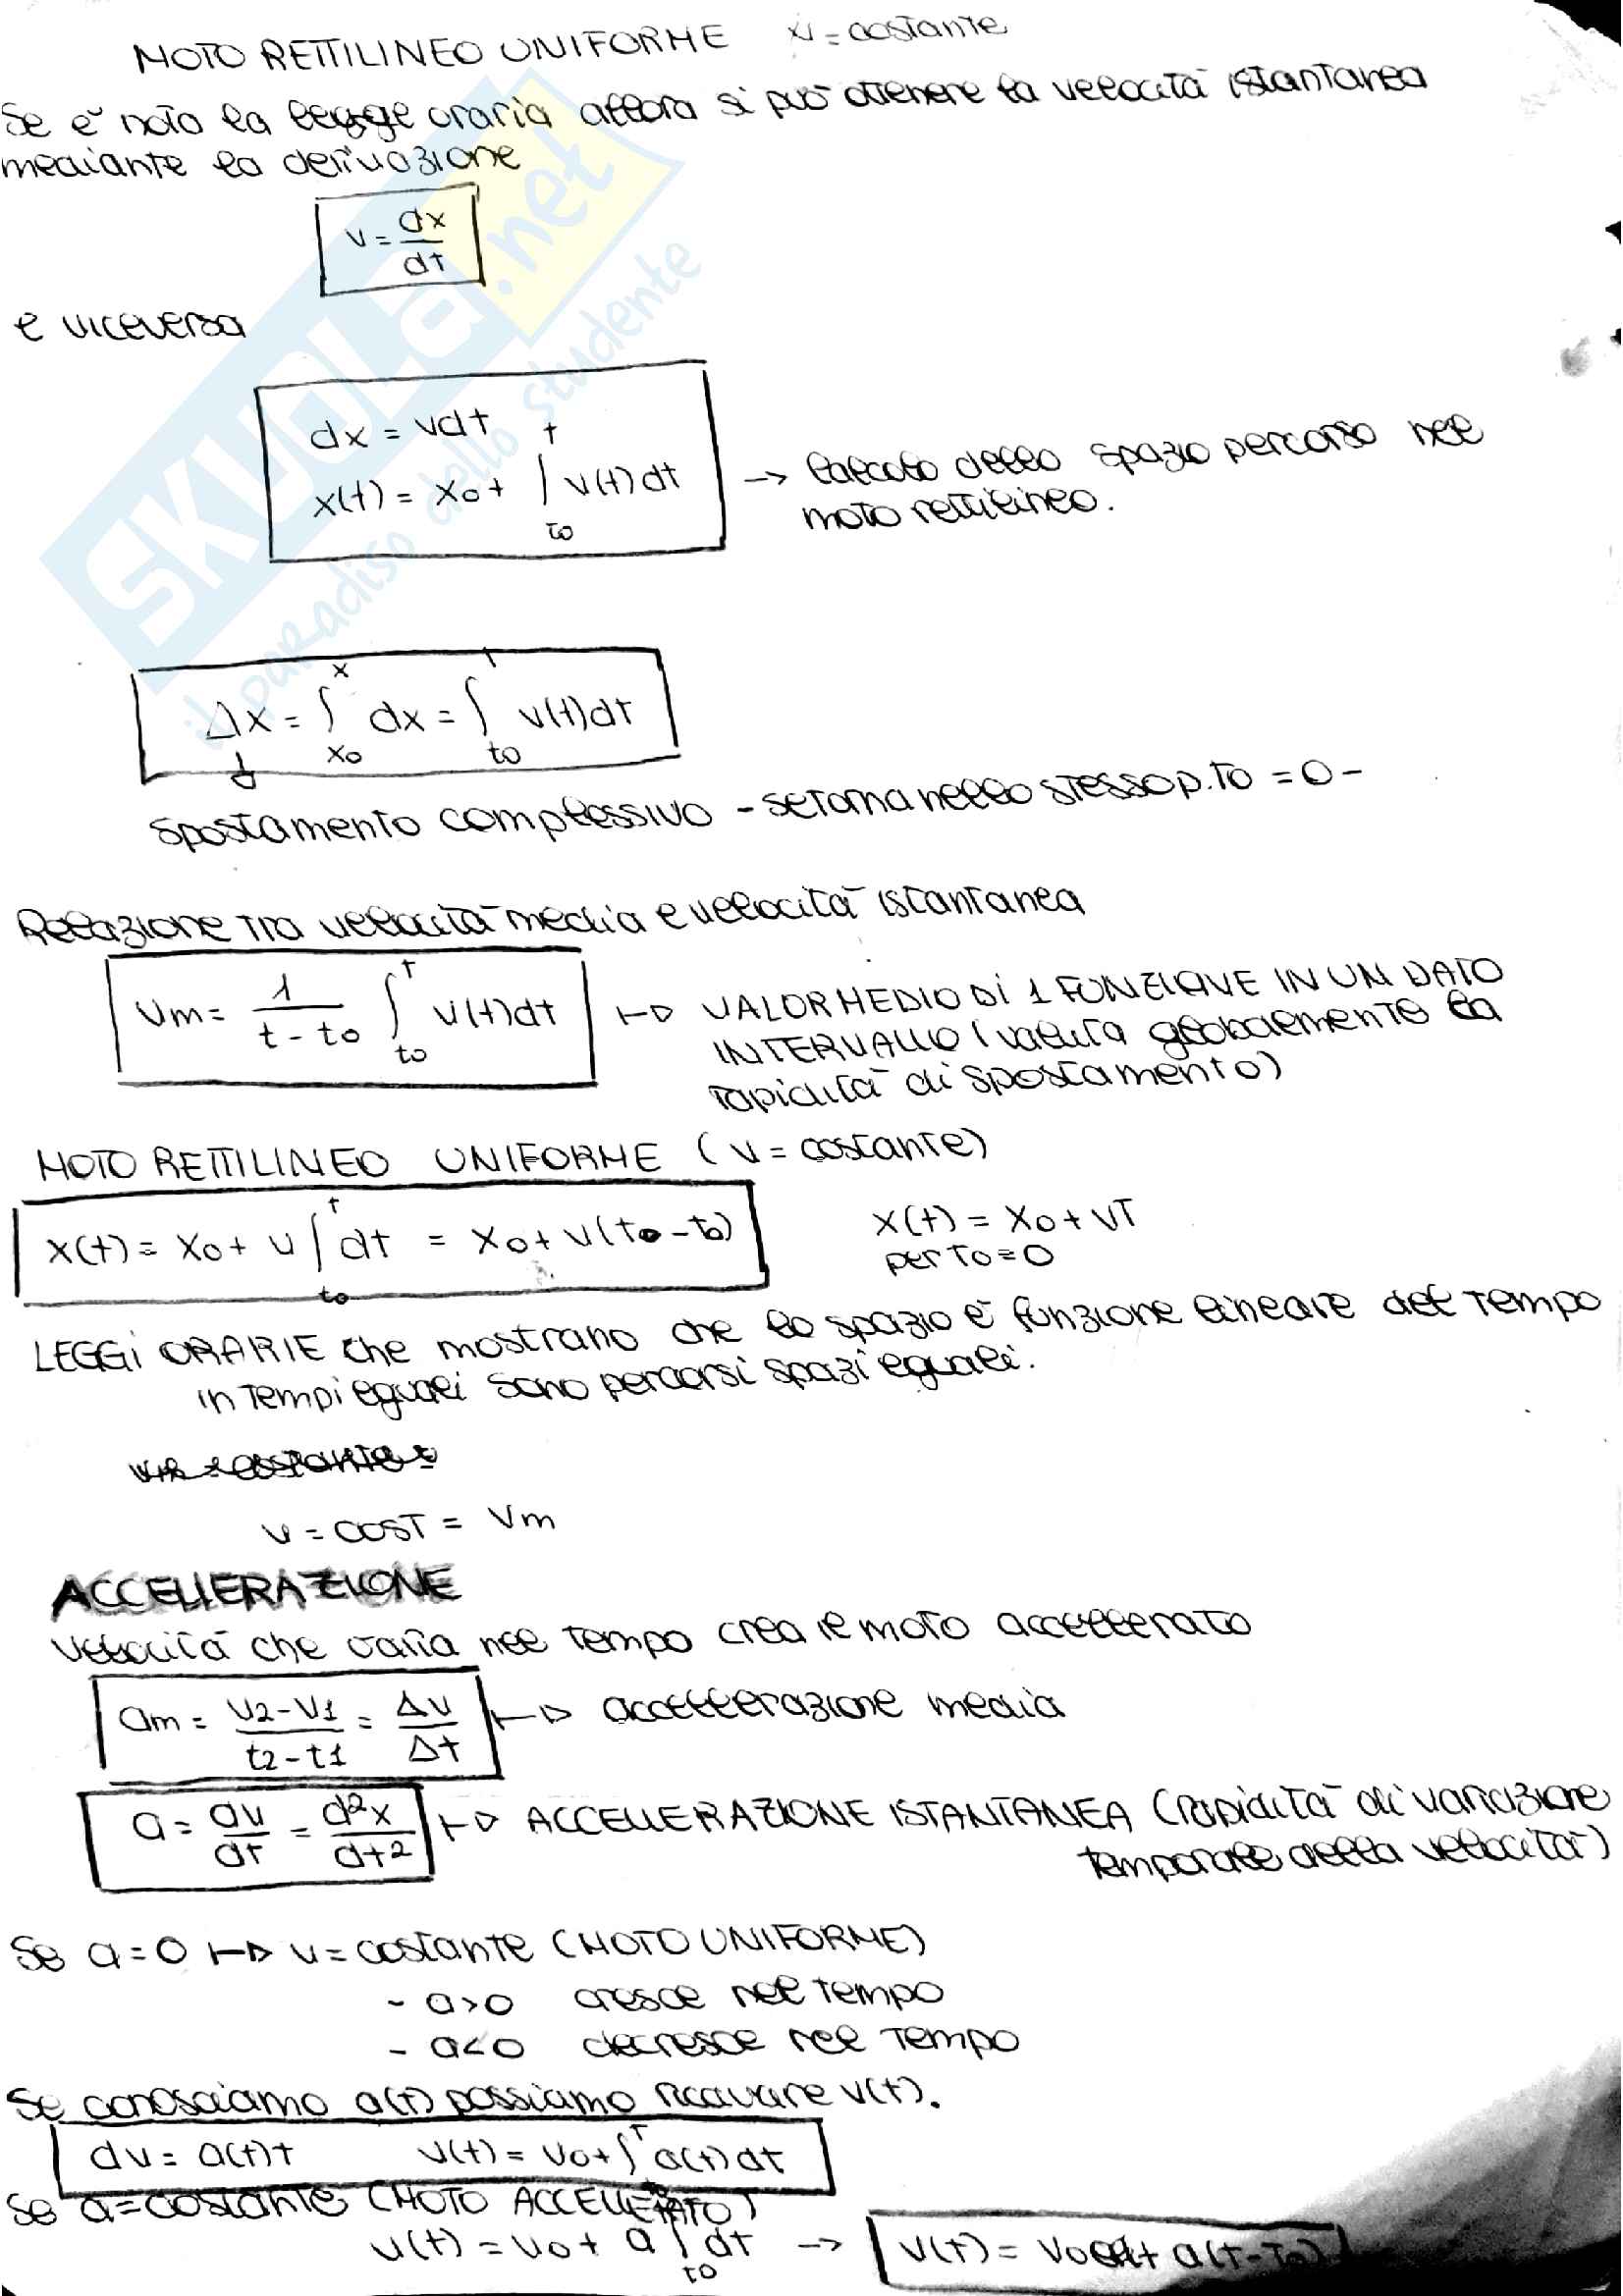 MOTO RETTILINEO UNIFORME v = costante
Se è noto la legge oraria allora si può ottenere la velocità istantanea
mediante la derivazione
v = dx/dt
e viceversa
dx = vdt
x(t) = x0 + ∫ t t0 v(t)dt → Calcolo dello spazio percorso nel
moto rettilineo.
Δx = ∫ x x0 dx = ∫ t t0 v(t)dt
spostamento complessivo - se torna nello stesso p.to = 0 -
Relazione tra velocità media e velocità istantanea
vm = 1/(t - t0) ∫ t t0 v(t)dt ↦ VALOR MEDIO DI 1 FUNZIONE IN UN DATO
INTERVALLO (valuta globalmente la
rapidità di spostamento)
MOTO RETTILINEO UNIFORME (v = costante)
x(t) = x0 + v ∫ t t0 dt = x0 + v(t0 - t0) x(t) = x0 + vt
per t0 = 0
LEGGI ORARIE che mostrano che lo spazio è funzione lineare del tempo
in tempi eguali sono percorsi spazi eguali.
v = COST = vm
ACCELLERAZIONE
Velocità che varia nel tempo crea il moto accellerato
am = (v2 - v1)/(t2 - t1) = Δv/Δt ↦ accellerazione media
a = dv/dt = d²x/dt² ↦ ACCELLERAZIONE ISTANTANEA (rapidità di variazione
temporale della velocità)
Se a = 0 ↦ v = costante (MOTO UNIFORME)
- a>0 cresce nel tempo
- a<0 decresce nel tempo
Se conosciamo a(t) possiamo ricavare v(t).
dv = a(t)t v(t) = v0 + ∫ t t0 a(t)dt
Se a = costante (MOTO ACCELLERATO)
v(t) = v0 + a ∫ t0 dt → v(t) = v0 + a(t-t0)
SKUOLA.net
il paradiso dello studente